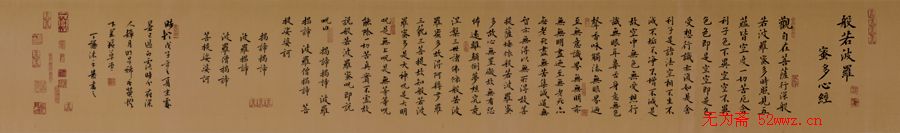 般若波羅
蜜多心經
觀自在菩薩行深般
若波羅蜜多時照見五
蘊皆空度一切苦厄舍
利子色不異空空不異
色色即是空空即是色
受想行識亦復如是舍
利子是諸法空相不生不
滅不垢不淨不增不減是
故空中無色無受想行
識無眼耳鼻舌身意無色
聲香味觸法無眼界乃
至無意識界無無明亦
無無明盡乃至無老死亦
無老死盡無苦集滅道
無智亦無得以無所得故菩
提薩埵依般若波羅蜜多
故心無罣礙無罣礙故無有恐
怖遠離顛倒夢想究竟
涅槃三世諸佛依般若波
羅蜜多故得阿耨多羅
三藐三菩提故知般若波
羅蜜多是大神咒是大明
咒是無上咒是無等等咒
能除一切苦真實不虛故
說般若波羅蜜多咒即說
咒曰 揭諦揭諦 波羅
揭諦 波羅僧揭諦 菩
提娑婆訶
揭諦揭諦
波羅揭諦
波羅僧揭諦
菩提娑婆訶
无为斋
52wwz.cn